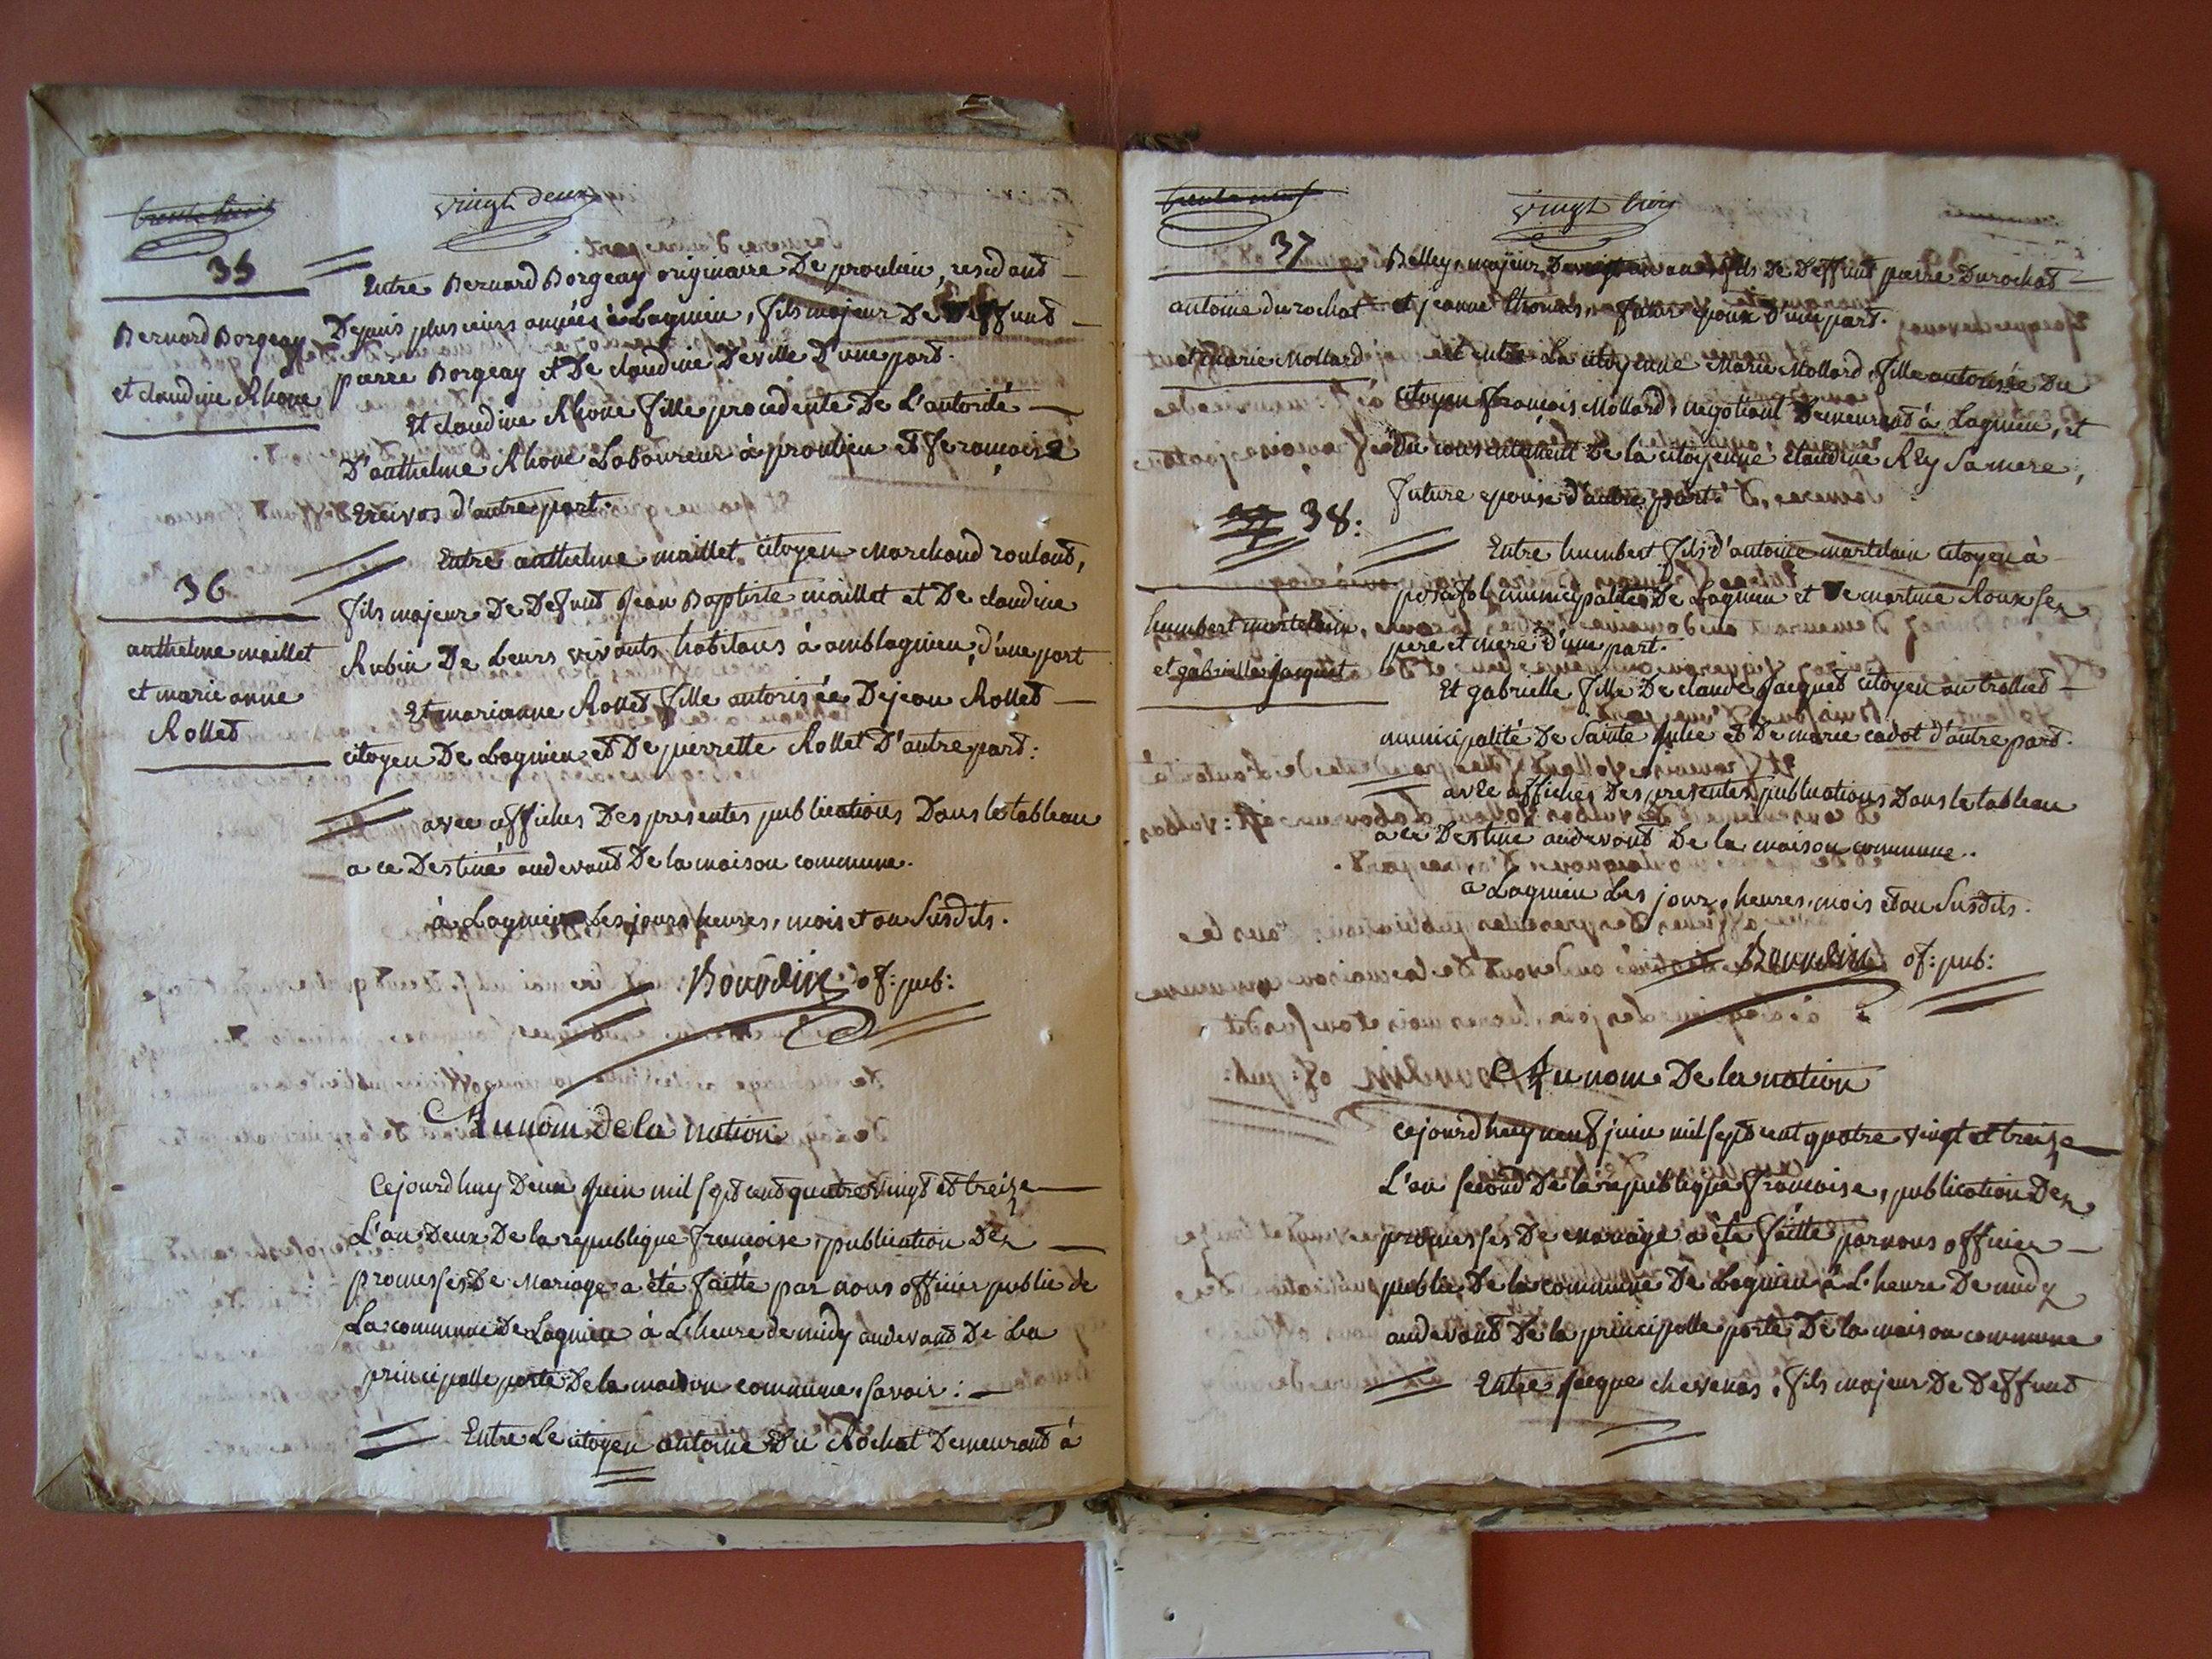 trente huit
vingt deux
35
Entre Bernard Borgeay originaire De proulieu, residant
Bernard Borgeay
et claudine Rhone
Depuis plusieurs années à Lagnieu, fils majeur De Deffund
pierre Borgeay et De claudine Deville D'une part.
Et claudine Rhone fille procedente De L'autorité
D'anthelme Rhone Laboureur à proulieu et francoise
d'autre part.
36
Entre anthelme maillet citoyen Marchand roulant,
anthelme maillet
et marie anne
Rollet
fils majeur De Defund Jean Baptiste maillet et De claudine
Rubin De Leurs vivants habitans à amblagnieu, d'une part
Et marianne Rollet fille autorisée De jean Rollet
citoyen De Lagnieu et De pierrette Rollet D'autre part:
avec affiches Des presentes publications Dans le tableau
a ce Destiné audevant De la maison commune.
à Lagnieu Les jours heures, mois et an Susdits.
of: pub:
Au nom de la nation
Cejourdhuy Deux Juin mil sept cent quatre vingt et treize
L'an Deux De la republique francoise, publication Des
promesses De Mariage a été faitte par nous officier public de
La commune De Lagnieu à L'heure de midy audevant De La
principalle porte De la maison commune, Savoir:
Entre Le citoyen antoine Du Rochat Demeurant à
trente neuf
vingt trois
37
Belley, majeur De vingt un ans, fils De Deffunt pierre Durochat
antoine durochat
et marie Mollard
et jeanne thomas, futur epoux d'une part.
et entre La citoyenne Marie Mollard, fille autorisée Du
citoyen francois Mollard, negotiant Demeurant à Lagnieu, et
Du consentement De la citoyenne claudine Rey Sa mere,
future epouse d'autre part.
38:
Entre humbert fils d'antoine martelain citoyen à
humbert martelain,
et gabrielle jacquet
posafol municipalité De Lagnieu et De martine Roux ses
pere et mere d'une part.
Et gabrielle fille De claude Jacquet citoyen au trolliet
municipalité De Sainte Julie et De marie cadot d'autre part.
avec affiches Des presentes publications Dans le tableau
a ce Destiné audevant De la maison commune.
à Lagnieu Les jour, heures, mois et an Susdits.
of: pub:
Au nom De la nation
Cejourdhuy neuf juin mil sept cent quatre vingt et treize
L'an second De la republique francoise, publication Des
promesses De mariage a été faitte par nous officier
public De la commune De Lagnieu à L'heure De midy
audevant De la principalle porte De la maison commune
Entre Jacque chevenas, fils majeur De Deffunt